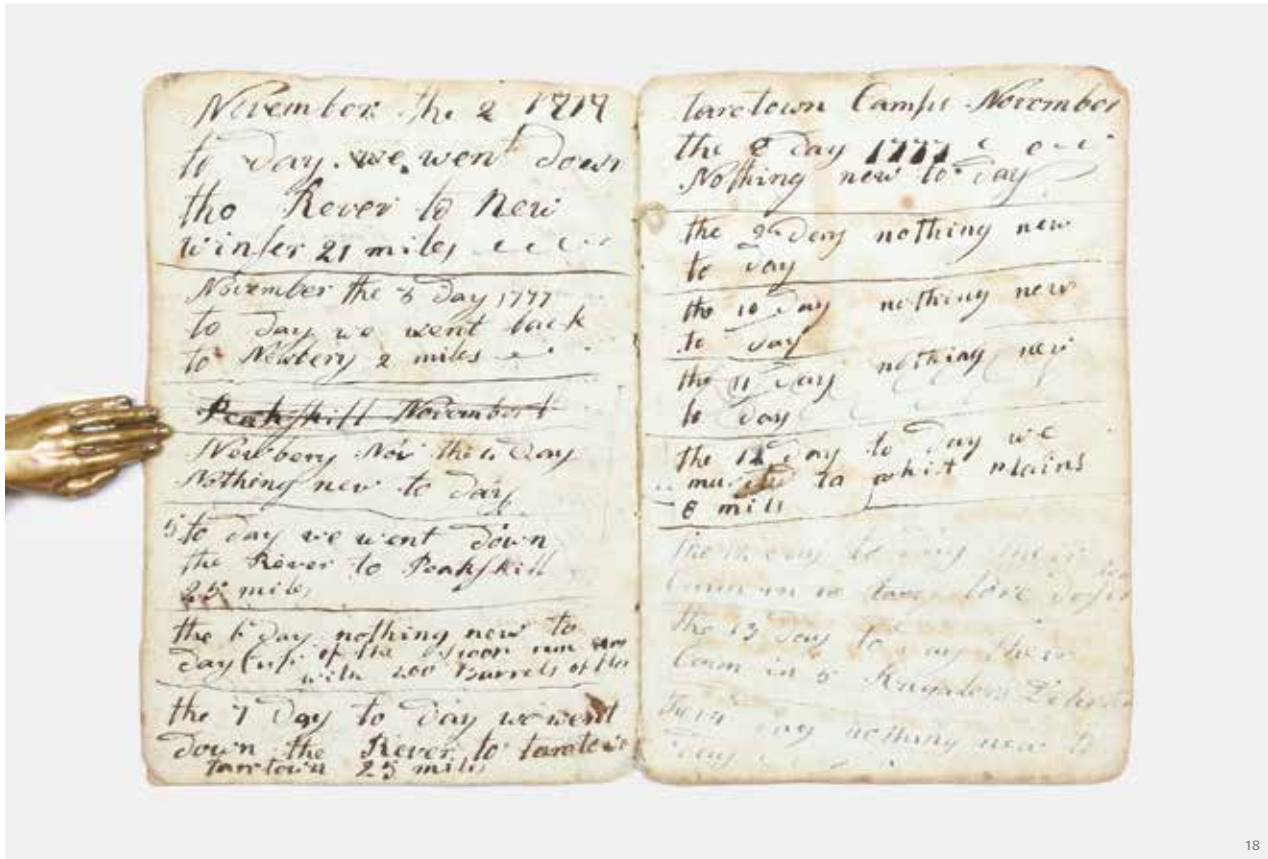 November the 2 1777
to day we went down
the Rever to New
winter 21 miles
November the 3 Day 1777
to day we went back
to Newbery 2 miles
Peakskill November
Newbery Nov the 4 Day
Nothing new to day
5 to day we went down
the Rever to Peakskill
25 miles
the 6 day nothing new to
day of the
with 200 Barrels of
the 7 Day to day we went
down the Rever to taretown
taretown 25 miles
taretown Camp November
the 8 day 1777
Nothing new to day
the 9 day nothing new
to day
the 10 day nothing new
to day
the 11 day nothing new
to day
the 12 day to day we
to whit plains
8 mils
the day to day
the 13 day to day
in 5
day nothing new to
day
18